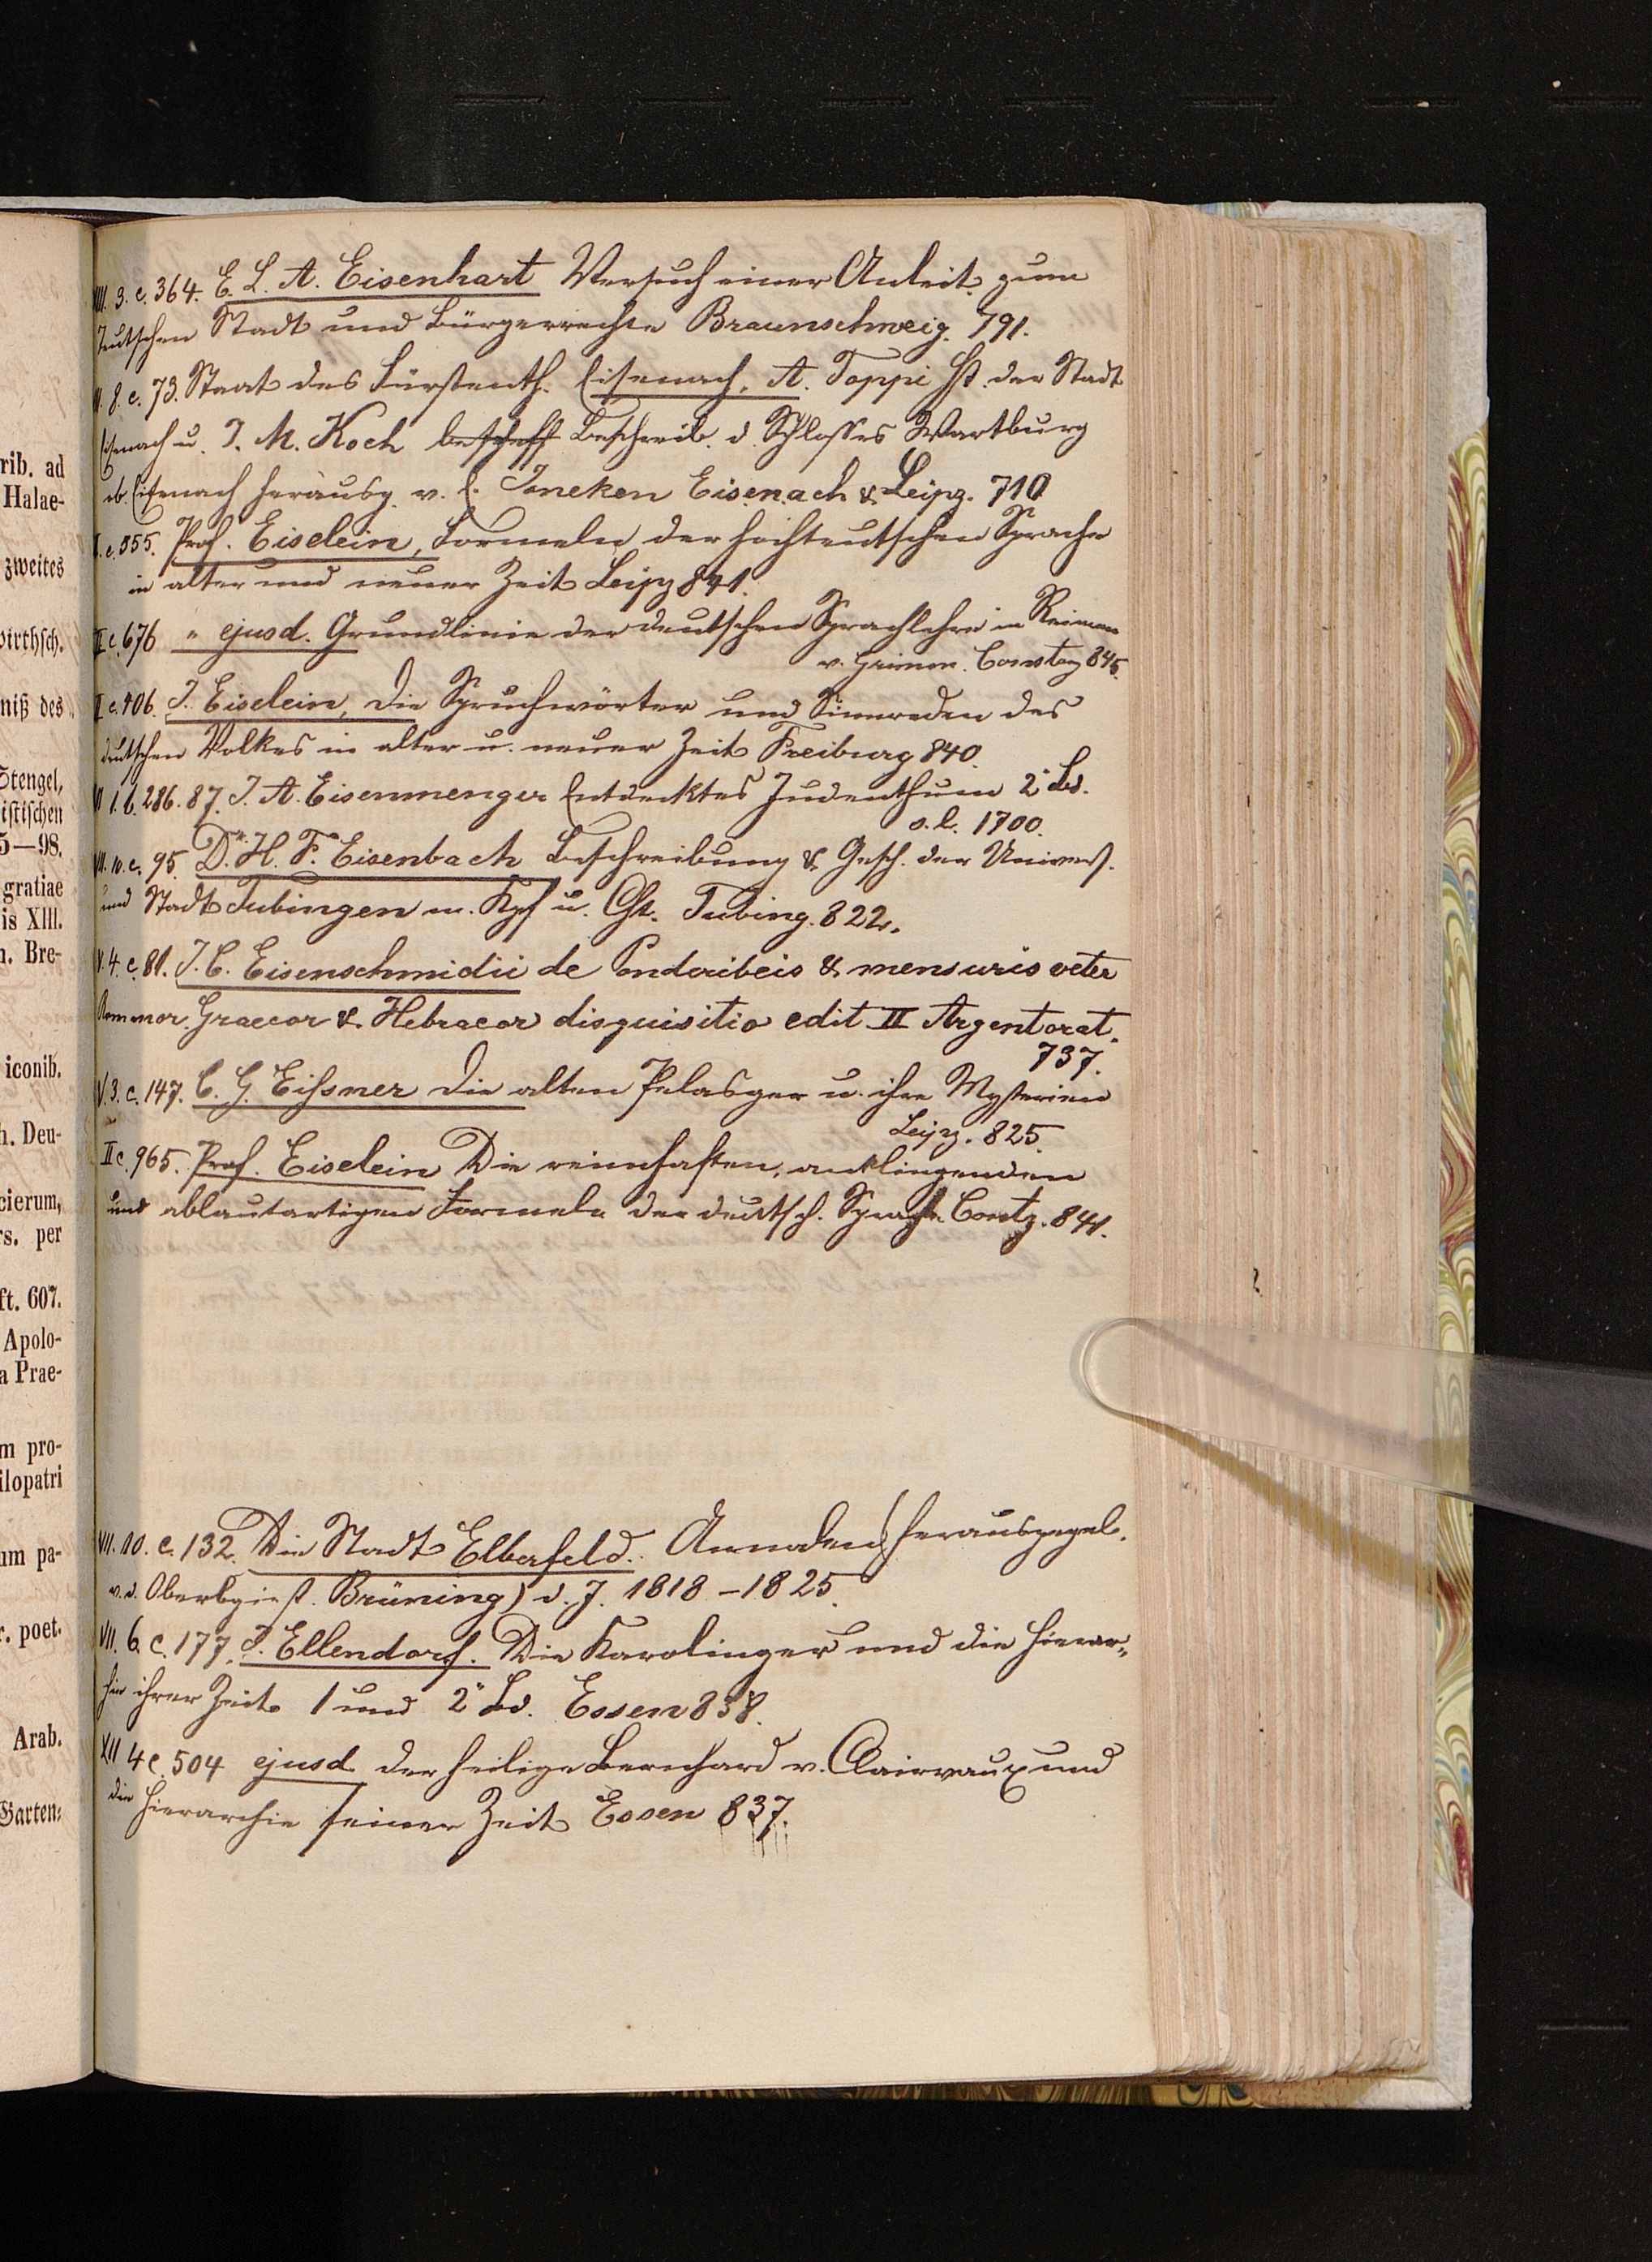 rib. ad
Halae-
zweites
wirthsch.
niß des
Stengel,
istischen
5—98.
gratiae
is XIII.
n. Bre-
iconib.
h. Deu-
cierum,
rs. per
ft. 607.
Apolo-
a Prae-
m pro-
ilopatri
um pa-
r. poet.
Arab.
Garten-
VIII. 3. c. 364. E. L. A. Eisenhart Versuch einer Anleit. zum
Teutschen Stadt und Bürgerrechte Braunschweig. 791.
8. c. 73. Staat des Fürstenth. Eisenach, A. Toppi Hst. der Stadt
Eisenach u. J. M. Koch Beschreib. d. Schlosses Wartburg
ob. Eisenach herausg. v. C. Juncken Eisenach & Leipz. 710
c. 555. Prof. Eiselein, Formeln der hochteutschen Sprache
in alter und neuer Zeit Leipz 841.
II c. 676 " ejusd. Grundlinie der deutschen Sprachlehre in Reimen
v. Grimm. Constanz 845.
II c. 406. J. Eiselein, die Spruchwörter und Sinnreden des
deutschen Volkes in alter u. neuer Zeit Freiburg 840.
VI 1. b. 286. 87. J. A. Eisenmenger Entdecktes Judenthum 2 Bd.
s. l. 1700.
VII. 10. c. 95. Dr. H. F. Eisenbach Beschreibung & Gesch. der Univers.
und Stadt Tubingen m. Kpf u. Cht. Tubing. 822.
V. 4. c. 81. J. C. Eisenschmidii de Ponderibus & mensuris veter
Romanor. Graecor & Hebraeor disquisitio edit II Argentorat.
737.
V. 3. c. 147. C. G. Eißner die alten Pelasger u. ihre Mysterien
Leipz. 825.
II c. 965. Prof. Eiselein Die reimhaften, anklingenden
und ablautartigen Formeln der deutsch. Sprache Contz. 841.
VII. 10. c. 132. Die Stadt Elberfeld. Annalen (herausgegeb.
v. d. Oberbgmst. Brüning) d. J. 1818 - 1825.
VII. 6. c. 177. J. Ellendorf. Die Karolinger und die Hierar-
hie ihrer Zeit. 1 und 2 Bd. Essen 838.
XII 4 c. 504 ejusd. der heilige Bernhard v. Clairvaux und
die Hierarchie seiner Zeit Essen 837.